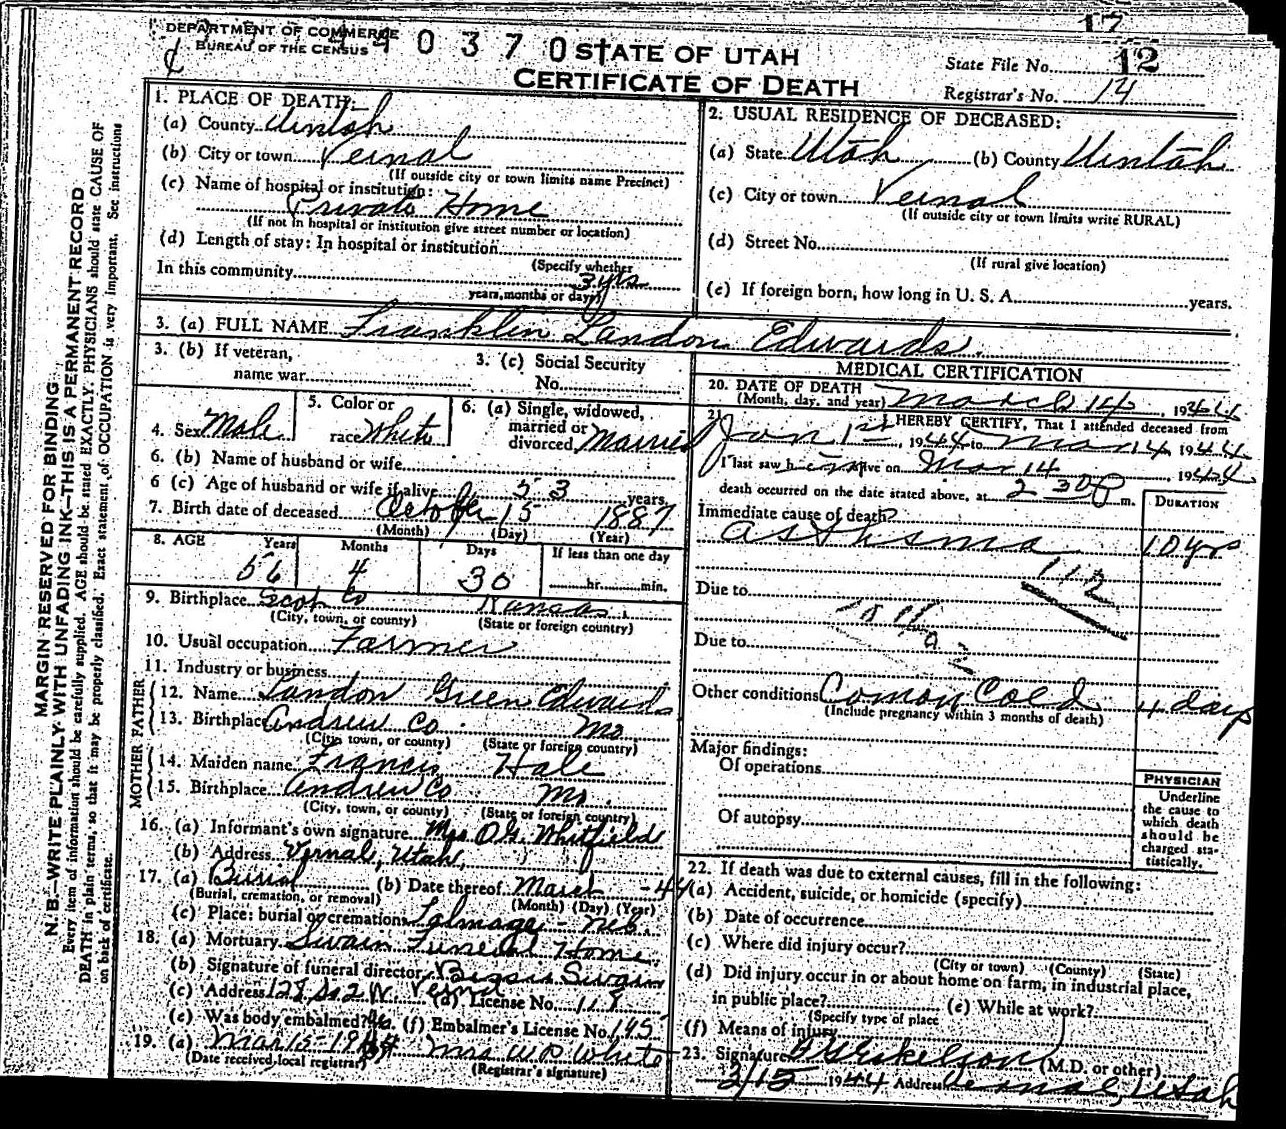 17
DEPARTMENT OF COMMERCE
BUREAU OF THE CENSUS
0 3 7 0
STATE OF UTAH
CERTIFICATE OF DEATH
State File No. 12
Registrar's No. 14
MARGIN RESERVED FOR BINDING
N. B.—WRITE PLAINLY WITH UNFADING INK—THIS IS A PERMANENT RECORD
Every item of information should be carefully supplied. AGE should be stated EXACTLY. PHYSICIANS should state CAUSE OF
DEATH in plain terms, so that it may be properly classified. Exact statement of OCCUPATION is very important. See instructions
on back of certificate.
1. PLACE OF DEATH:
(a) County Uintah
(b) City or town Vernal
(If outside city or town limits name Precinct)
(c) Name of hospital or institution:
Private Home
(If not in hospital or institution give street number or location)
(d) Length of stay: In hospital or institution
(Specify whether
In this community 3 yrs
years, months or days)
2. USUAL RESIDENCE OF DECEASED:
(a) State Utah (b) County Uintah
(c) City or town Vernal
(If outside city or town limits write RURAL)
(d) Street No.
(If rural give location)
(e) If foreign born, how long in U. S. A. years.
3. (a) FULL NAME Franklin Landon Edwards
3. (b) If veteran,
name war
3. (c) Social Security
No.
4. Sex Male
5. Color or
race White
6. (a) Single, widowed,
married or
divorced Married
6. (b) Name of husband or wife
6 (c) Age of husband or wife if alive 53 years.
7. Birth date of deceased October 15 1887
(Month) (Day) (Year)
8. AGE Years Months Days If less than one day
56 4 30 hr. min.
9. Birthplace Scott Co Kansas
(City, town, or county) (State or foreign country)
10. Usual occupation Farmer
11. Industry or business
FATHER
12. Name Landon Green Edwards
13. Birthplace Andrew Co. Mo.
(City, town, or county) (State or foreign country)
MOTHER
14. Maiden name Francis Hale
15. Birthplace Andrew Co Mo.
(City, town, or county) (State or foreign country)
16. (a) Informant's own signature Mrs O.G. Whitfield
(b) Address Vernal, Utah
17. (a) Burial (b) Date thereof March - 44
(Burial, cremation, or removal) (Month) (Day) (Year)
(c) Place: burial or cremation Talmage - Neb.
18. (a) Mortuary Swain Funeral Home
(b) Signature of funeral director Bessie Swain
(c) Address 128 So. 2 W. Vernal (d) License No. 119
(e) Was body embalmed? Yes (f) Embalmer's License No. 145
19. (a) Mar 15 - 1944 Mrs W.P. White
(Date received local registrar) (Registrar's signature)
MEDICAL CERTIFICATION
20. DATE OF DEATH
(Month, day, and year) March 14, 1944
21. I HEREBY CERTIFY, That I attended deceased from
Jan 1st, 1944 to Mar 14 1944
I last saw him alive on Mar 14 1944
death occurred on the date stated above, at 2 30 P m.
DURATION
Immediate cause of death
Asthma 10 yrs
112
Due to
Due to
Other conditions Comon Cold 4 days
(Include pregnancy within 3 months of death)
Major findings:
Of operations
Of autopsy
PHYSICIAN
Underline
the cause to
which death
should be
charged sta-
tistically.
22. If death was due to external causes, fill in the following:
(a) Accident, suicide, or homicide (specify)
(b) Date of occurrence
(c) Where did injury occur?
(City or town) (County) (State)
(d) Did injury occur in or about home on farm, in industrial place,
in public place? (e) While at work?
(Specify type of place
(f) Means of injury
23. Signature (M.D. or other)
3/15 1944 Address Vernal, Utah